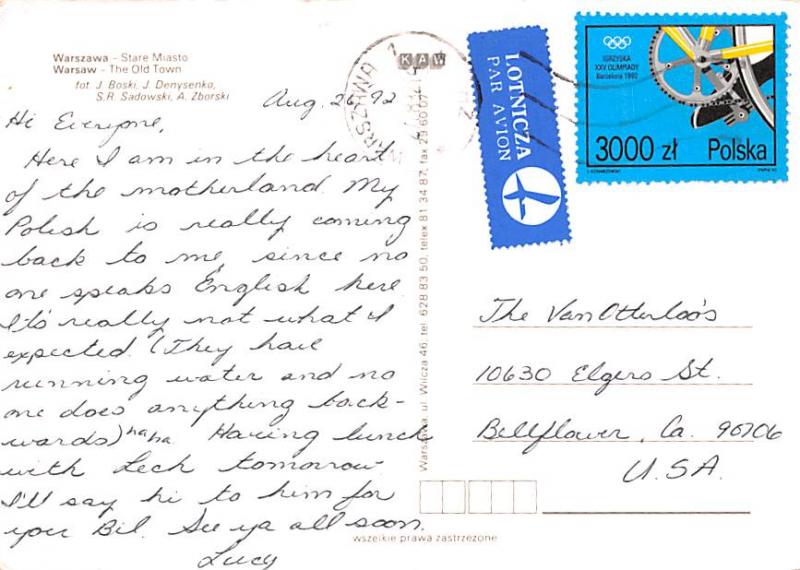 Warszawa - Stare Miasto
Warsaw - The Old Town
fot. J. Boski, J. Denysenko,
S.R. Sadowski, A. Zborski
KAW
Aug. 26 92
Hi Everyone,
Here I am in the heart
of the motherland. My
Polish is really coming
back to me, since no
one speaks English here
It's really not what I
expected. (They have
running water and no
one does anything back-
wards) ha ha Having lunch
with Lech tomorrow.
I'll say hi to him for
you Bil. See ya all soon.
Lucy
Warszawa, ul. Wilcza 46, tel. 628 83 50, telex 81 34 87, fax 29 60 07
wszelkie prawa zastrzeżone
WARSZAWA 1
LOTNICZA
PAR AVION
IGRZYSKA
XXV OLIMPIADY
Barcelona 1992
3000 zł Polska
The VanOtterloo's
10630 Elgers St.
Bellflower, Ca. 90706
U.S.A.